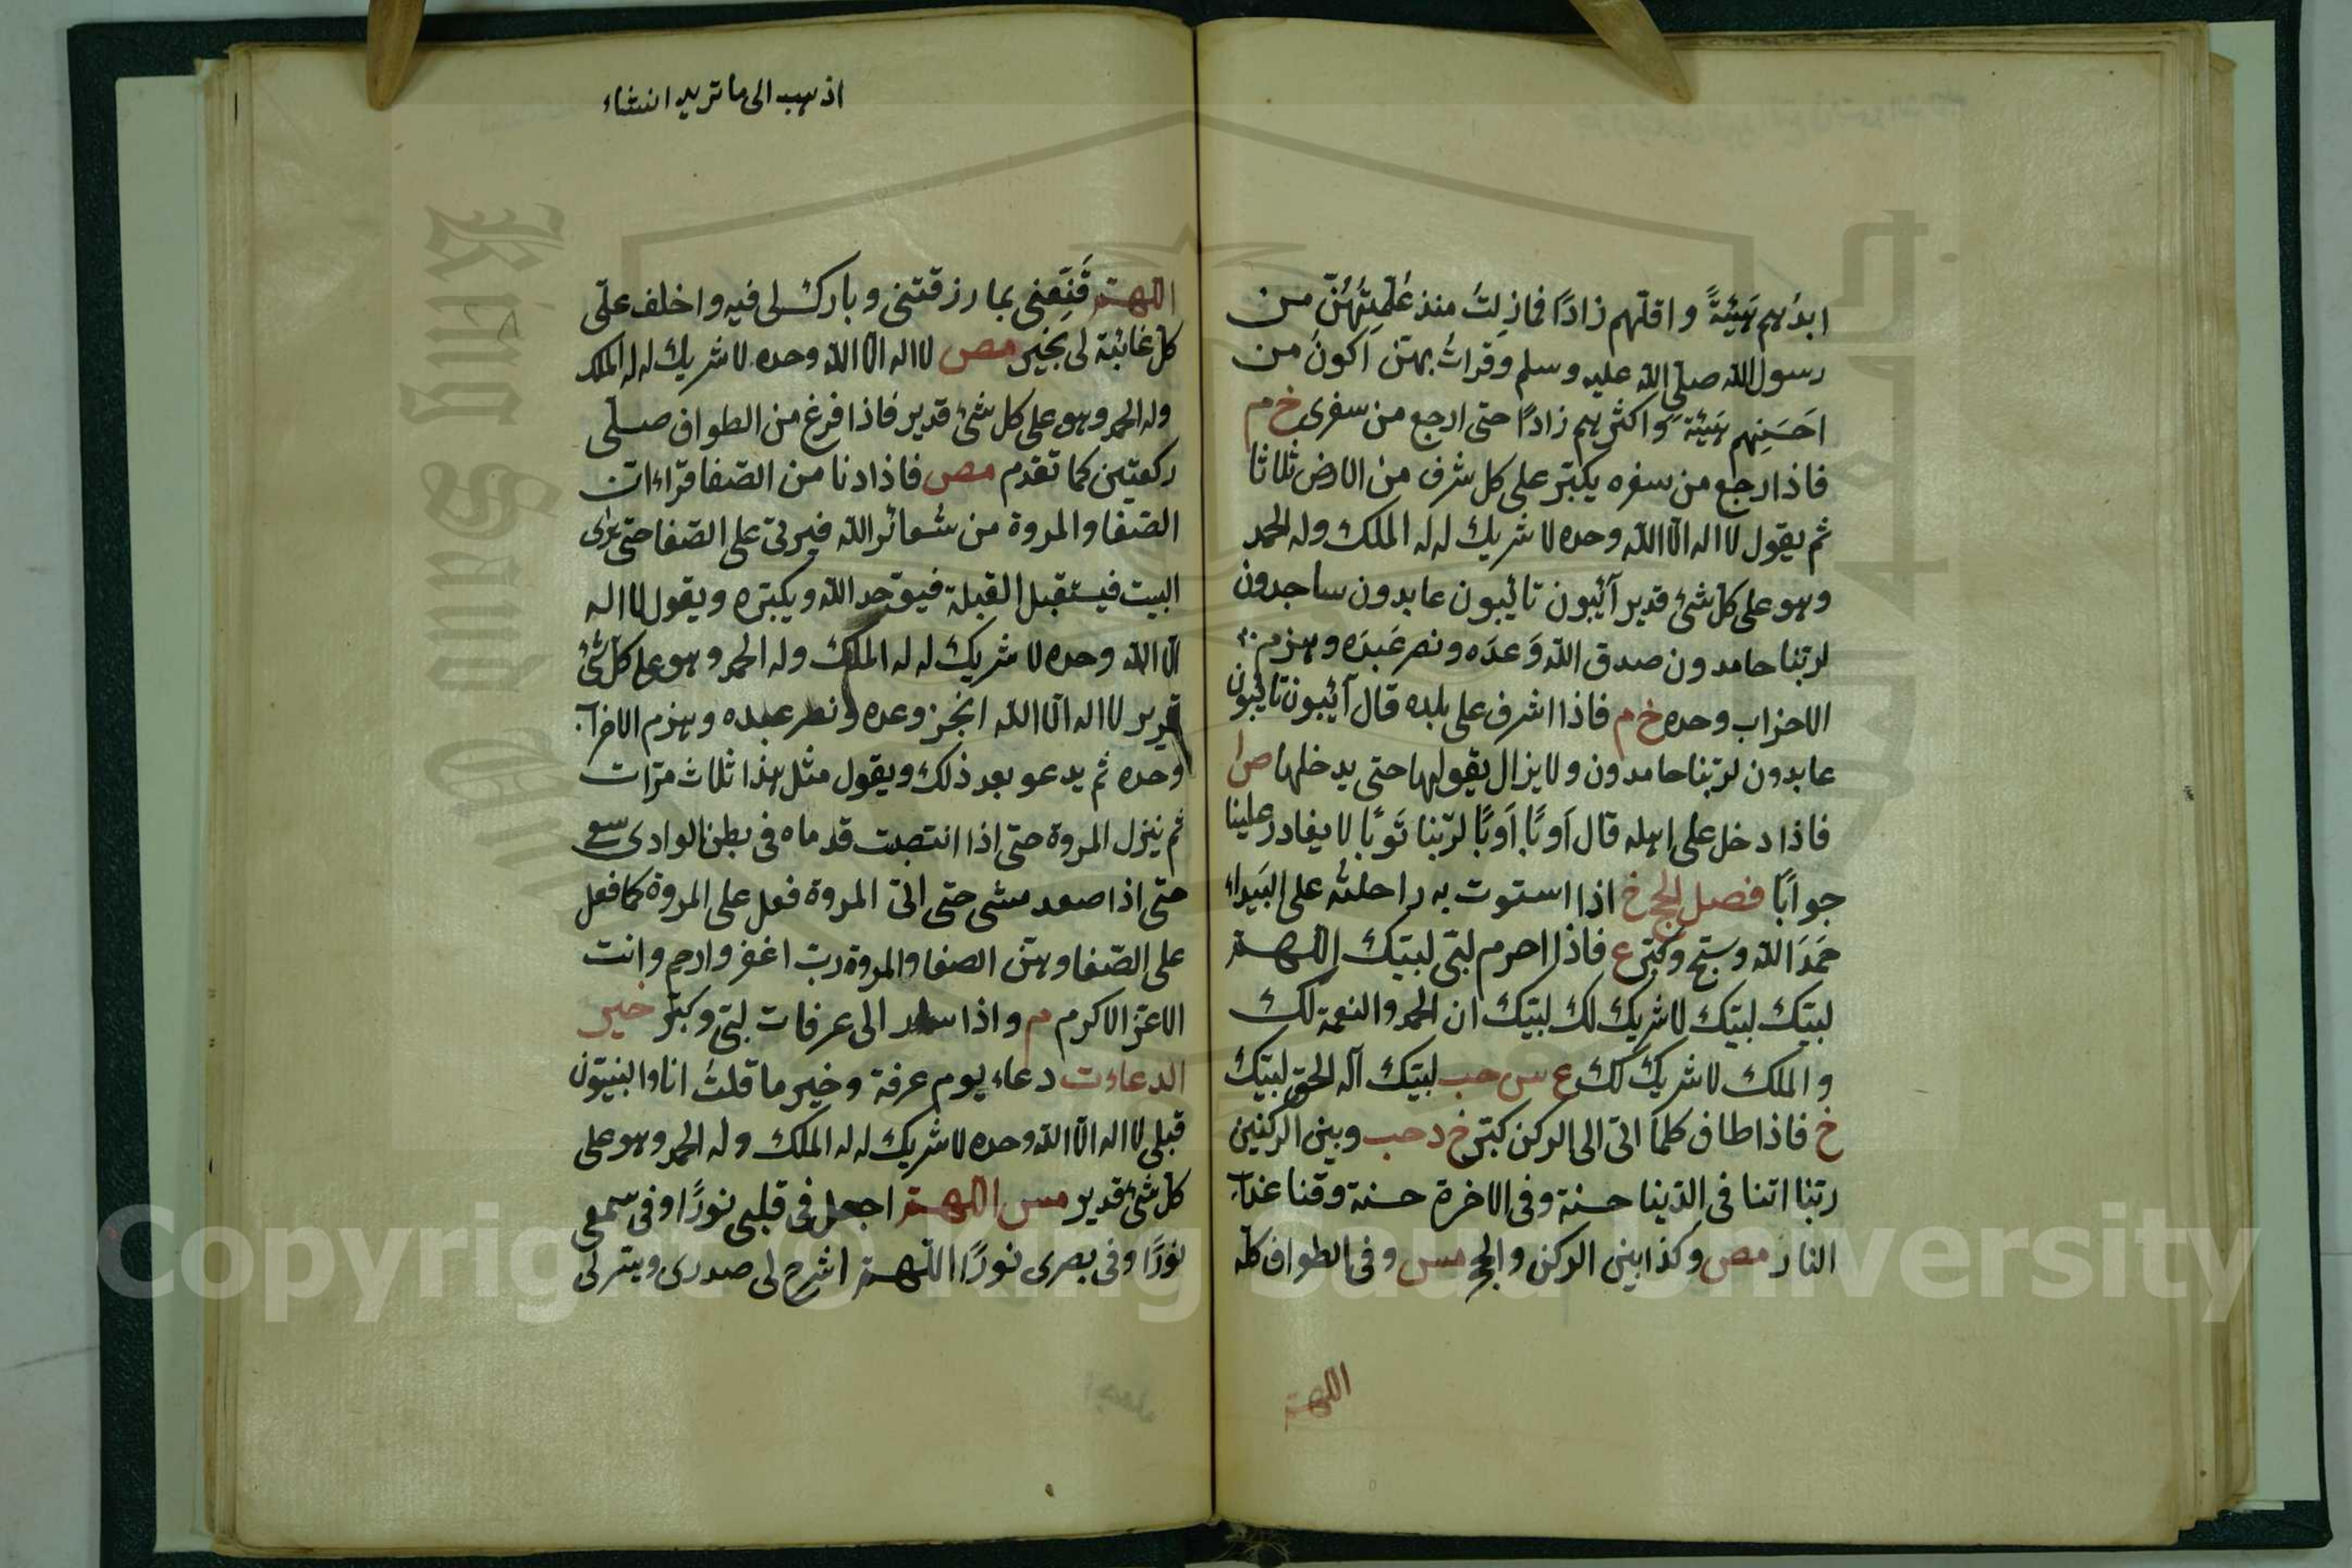 ابذهم هيئةً واقلهم زادًا فمازلتُ منذ عُلّمِتُهُنّ من
رسول الله صلى الله عليه وسلم وقرأتُ بهن اكونُ من
احَسَنِهم هيئة واكثرهم زادًا حتى ارجع من سفرى خ م
فاذا رجع من سفره يكبّر على كل شرف من الارض ثلاثا
ثم يقول لا اله الا الله وحده لا شريك له له الملك وله الحمد
وهو على كل شئ قدير آئبون تائبون عابدون ساجدون
لربّنا حامدون صدق الله وَعدَه ونصر عَبدَه وهزم
الاحزاب وحده خ م فاذا اشرف على بلده قال آئبون تائبون
عابدون لربّنا حامدون ولا يزال يقولها حتى يدخلها
فاذا دخل على اهله قال اَوبًا اَوبًا لربّنا تَوبًا لا يغادر علينا
حوابًا فصل الحج خ اذا استوت به راحلتُه على البَيداء
حَمَدَ الله وسبّح وكبّر ع فاذا احرم لبّى لبّيك اللّهمّ
لبّيك لبّيك لا شريك لك لبّيك ان الحمد والنعمة لك
والملك لا شريك لك ع س حب لبّيك اله الحق لبّيك
خ فاذا طاف كلما اتى الى الركن كبّر خ د حب وبين الركنين
ربّنا اتنا فى الدّنيا حسنة وفى الاخرة حسنة وقنا عذاب
النار مص وكذا بين الركن والحجر مس وفى الطواف كلّه
اللهمّ
اذهب الى ما تريد انشاء
اللّهمّ قَنِّعِنى بما رزقتنى وبارك لى فيه واخلف علىّ
كل غائبة لى بخير مص لا اله الا الله وحده لا شريك له له الملك
وله الحمد وهو على كل شئ قدير فاذا فرغ من الطواف صلّى
ركعتين كما تقدم مص فاذا دنا من الصّفا قراء ان
الصّفا والمروة من شعائر الله فيرقى على الصّفا حتى يرى
البيت فيستقبل القبلة فيوحد الله ويكبّره ويقول لا اله
الا الله وحده لا شريك له له الملك وله الحمد وهو على كل شئ
قدير لا اله الا الله انجز وعده ونصر عبده وهزم الاحزاب
وحده ثم يدعو بعد ذلك ويقول مثل هذا ثلاث مرّات
ثم ينزل المروة حتى اذا انتصبت قدماه فى بطن الوادى سعى
حتى اذا صعد مشى حتى اتى المروة فعل على المروة كما فعل
على الصّفا وبين الصفا والمروة ربّ اغفر وارحم وانت
الاعز الاكرم م واذا سار الى عرفات لبّى وكبّر خير
الدعاءت دعاء يوم عرفة وخير ما قلتُ انا والنبيّون
قبلى لا اله الا الله وحده لا شريك له له الملك وله الحمد وهو على
كل شئ قدير مس اللّهمّ اجعل فى قلبى نورًا وفى سمعى
نورًا وفى بصرى نورًا اللّهمّ اشرح لى صدرى ويسّر لى
Copyright © King Saud University